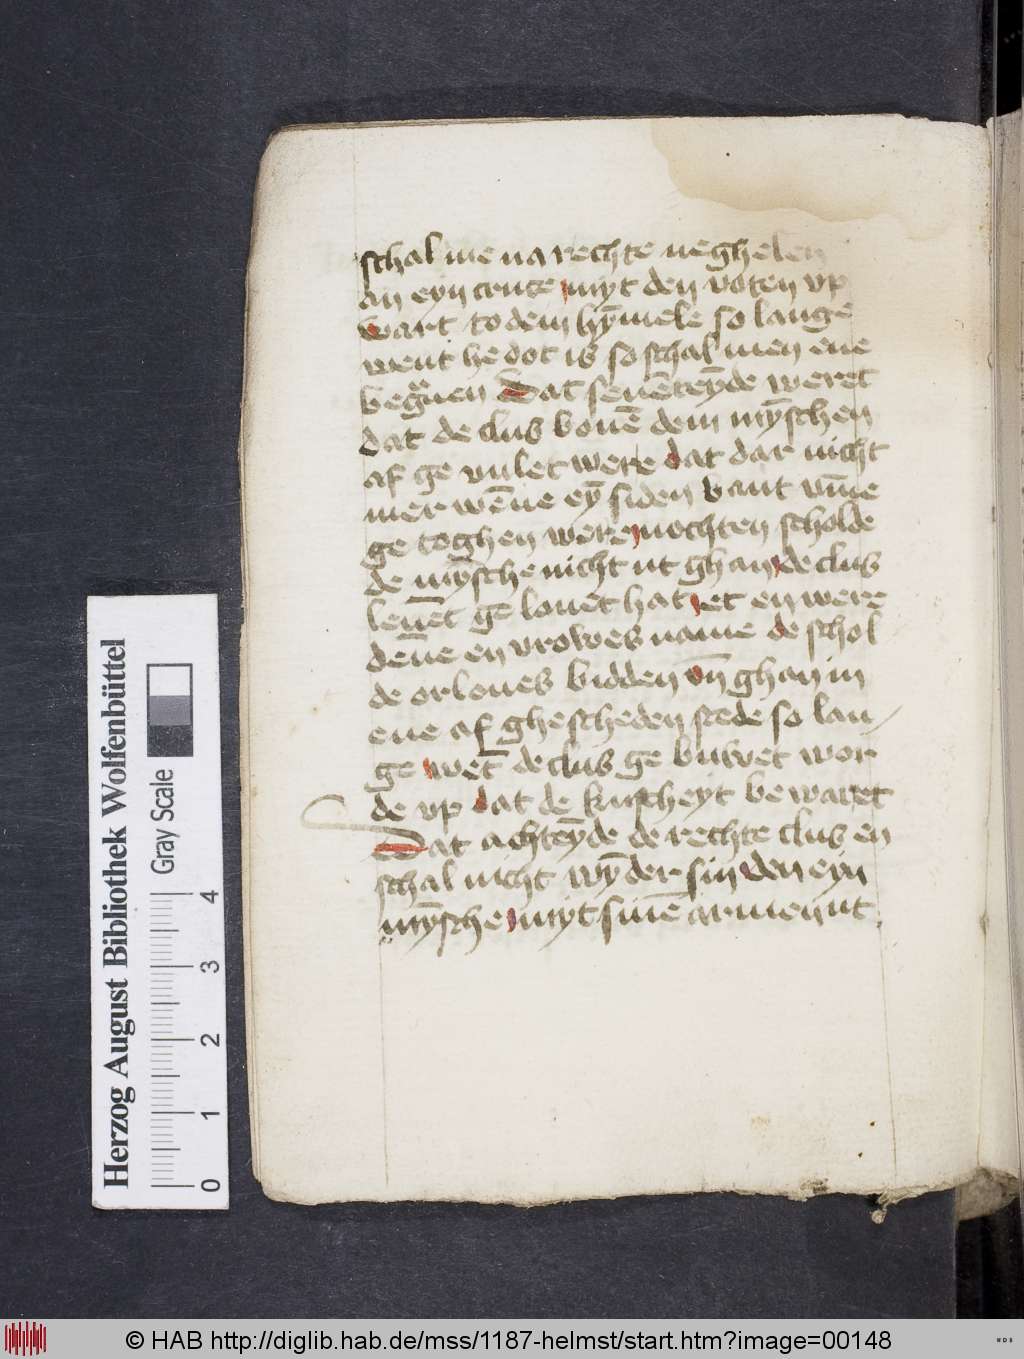 schal me na rechte neghelen
an eyn cruce myt den voten vp
wart to dem hȳmele so lange
went he dot is so schal men ene
begͣuen Dat seuēteȳde weret
dat de clus bouē dem mȳschen
af ge vullet were dat dar nicht
mer wēne eȳ siden vant vm̄e
ge toghen were nochten scholde
de mȳsche nicht ut ghan de clus
leuēt ge louet hat et en were
den̄e en vrowes name de schol
de orloues bidden vn̄ ghan in
ene af ghescheden stede so lan
ge wēt de clus ge buwet wor
de vp dat de kuscheyt bewaret
Dat achteȳde de rechte clus en
schal nicht wȳder sin den eyn
mȳsche myt sinē armen ut
Herzog August Bibliothek Wolfenbüttel
Gray Scale
0 1 2 3 4
© HAB http://diglib.hab.de/mss/1187-helmst/start.htm?image=00148
WDB